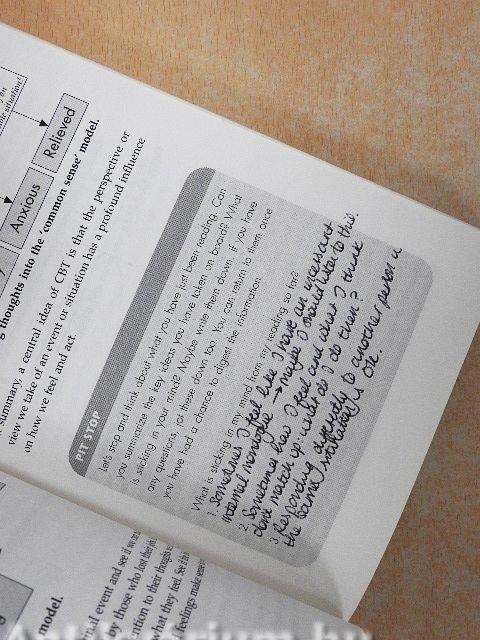 Relieved
Anxious
g thoughts into the 'common sense' model.
summary, a central idea of CBT is that the perspective or
view we take of an event or situation has a profound influence
on how we feel and act.
PIT STOP
Let's stop and think about what you have just been reading. Can
you summarize the key ideas you have taken on board? What
is sticking in your mind? Maybe write them down. If you have
any questions, jot these down too. You can return to them once
you have had a chance to digest the information.
What is sticking in my mind from my reading so far?
1. Sometimes I feel like I have an incessant
internal monologue → maybe I should listen to this.
2. Sometimes how I feel and what I think
dont match up: what do I do then?
3. Responding differently to another person in
the same situation is OK.
model.
nal event and see if
by those who lost their
ention to their
what they feel. See if
feelings make